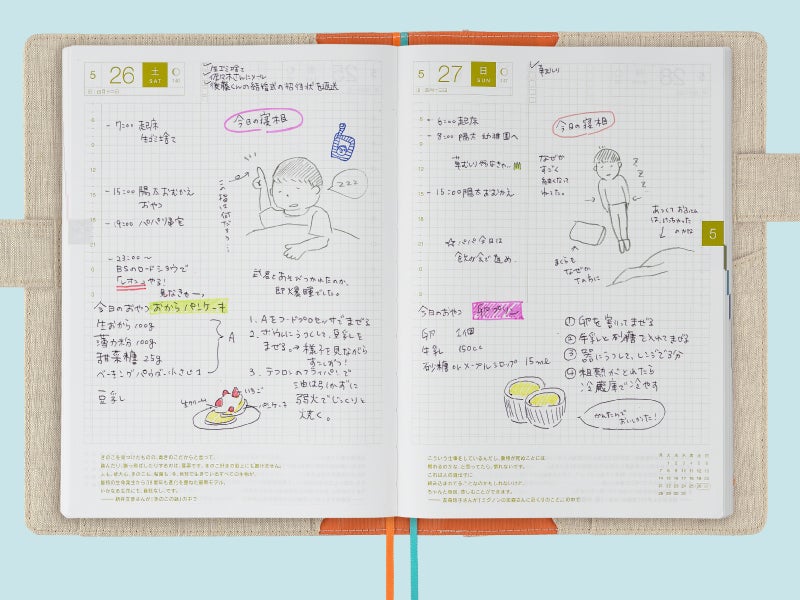 5 26 土 SAT
生ゴミ捨て
佐々木さんにメール
後藤くんの結婚式の招待状を返送
- 7:00 起床
生ゴミ捨て
今日の寝相
zzz
この指は何だろう…
- 15:00 陽太おむかえ
おやつ
- 19:00 パパ帰宅
- 23:00〜
BSのロードショウで
「レオン」やる!
見なきゃーっ
武君とあそびつかれたのか、
即爆睡でした。
今日のおやつ おからパンケーキ
生おから 100g
薄力粉 100g
甜菜糖 25g
ベーキングパウダー 小さじ1
A
豆乳
1. Aをフードプロセッサでまぜる
2. ボウルにうつして、豆乳を
まぜる。→ 様子を見ながら
すこしずつ!
3. テフロンのフライパンで
油は引かずに
弱火でじっくりと
焼く。
いちご
生クリーム
パンケーキ
5 27 日 SUN
草むしり
- 6:00 起床
- 8:00 陽太 幼稚園へ
草むしりやらなきゃ…
- 15:00 陽太おむかえ
☆パパ今日は
飲み会で遅め。
今日の寝相
なぜか
すごく
細くなって
ねてた。
z
z
z
あつくて
のかな
まくらも
なぜか
下の方に
5
今日のおやつ 卵プリン
卵 1個
牛乳 150cc
砂糖 or メープルシロップ 15ml
① 卵を割ってまぜる
② 牛乳と砂糖を入れてまぜる
③ 器にうつして、レンジで2分
④ 粗熱がとれたら
冷蔵庫で冷やす
かんたんで
おいしかった!